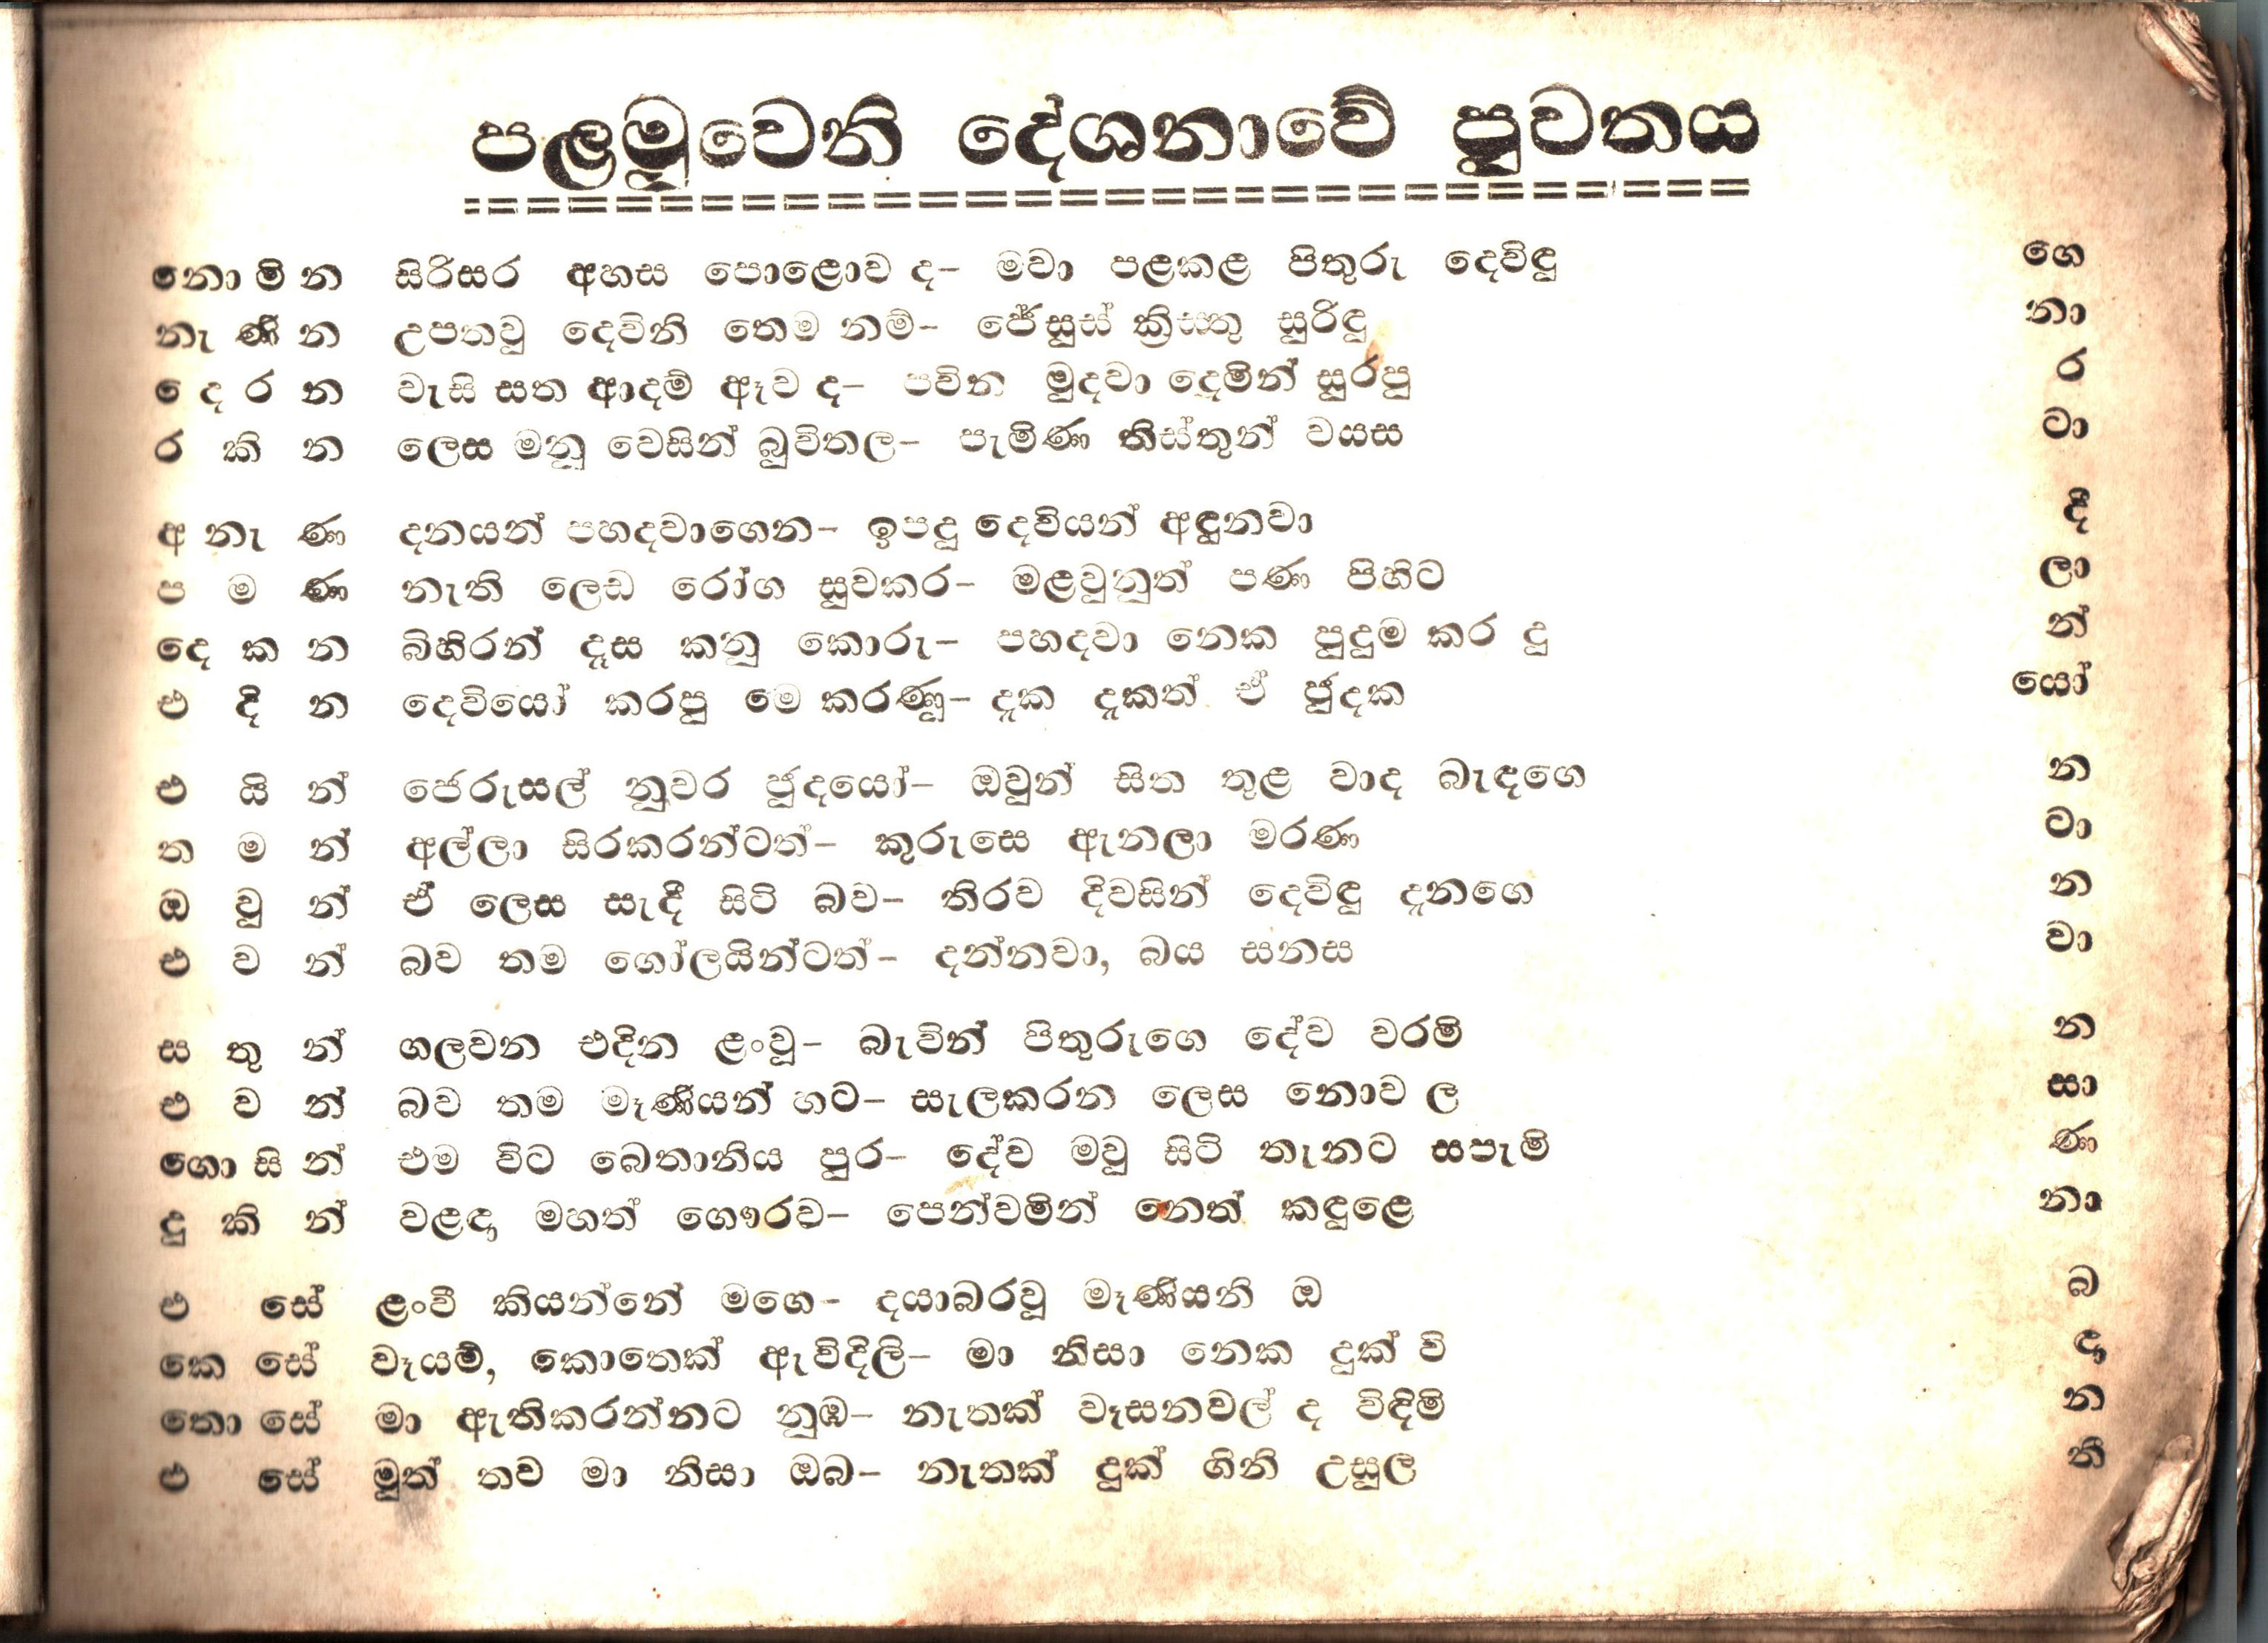 පලමුවෙනි දේශනාවේ පුවතය
නොමින සිරිසර අහස පොළොව ද- මවා පළකළ පිතුරු දෙවිඳු ගෙ
නැණින උපතවූ දෙවිනි තෙම නම්- ජේසුස් ක්‍රිස්තු සුරිඳු නා
දෙරන වැසි සත ආදම් ඈව ද- පවින මුදවා දෙමින් සුරපු ර
රකින ලෙස මනු වෙසින් බුවිතල- පැමිණ තිස්තුන් වයස ටා
අනැණ දනයන් පහදවාගෙන- ඉපදු දෙවියන් අඳුනවා දී
පමණ නැති ලෙඩ රෝග සුවකර- මළවුනුත් පණ පිහිට ලා
දෙකන බිහිරන් දෑස කනු කොරු- පහදවා නෙක පුදුම කර දු න්
එදින දෙවියෝ කරපු මෙ කරණු- දැක දැකත් ඒ ජුදක යෝ
එයින් ජෙරුසල් නුවර ජුදයෝ- ඔවුන් සිත තුළ වාද බැඳගෙ න
තමන් අල්ලා සිරකරන්ටත්- කුරුසෙ ඇනලා මරණ ටා
ඔවුන් ඒ ලෙස සැදී සිටි බව- තිරව දිවසින් දෙවිඳු දැනගෙ න
එවන් බව තම ගෝලයින්ටත්- දන්නවා, බය සනස වා
සතුන් ගලවන එදින ළංවූ- බැවින් පිතුරුගෙ දේව වරමි න
එවන් බව තම මෑණියන් හට- සැලකරන ලෙස නොව ල සා
ගොසින් එම විට බෙතානිය පුර- දේව මවු සිටි තැනට සපැමි ණ
දුකින් වළඳා මහත් ගෞරව- පෙන්වමින් නෙත් කඳුළෙ නා
එසේ ළංවී කියන්නේ මගෙ- දයාබරවූ මෑණියනි ඔ බ
කෙසේ වෑයම්, කොතෙක් ඇවිදිලි- මා නිසා නෙක දුක් වි ඳා
තොසේ මා ඇතිකරන්නට නුඹ- නැතක් වෑසනවල් ද විඳිමි න
එසේ මුත් තව මා නිසා ඔබ- නැතක් දුක් ගිනි උසුල තී